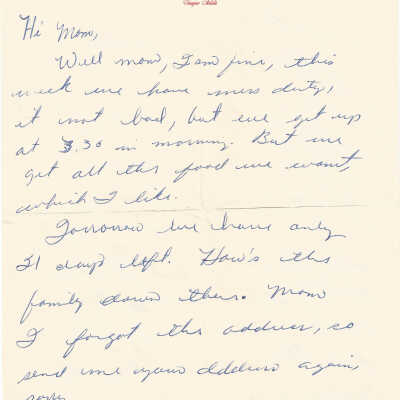 Hi Mom,
Well mom, I am fine, this
week we have mess duty,
it not bad, but we get up
at 3.30 in morning. But we
get all the food we want,
which I like.
Tomorrow we have only
31 days left. How's the
family down ther. Mom
I forgot the address, so
send me your address again,
sorry